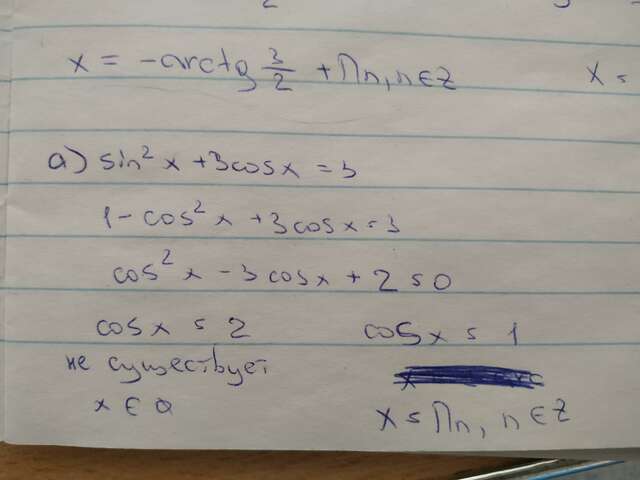 x = -arctg 3/2 + Πn, n ∈ Z
x =
a) sin²x + 3cosx = 3
1 - cos²x + 3cosx = 3
cos²x - 3cosx + 2 = 0
cosx = 2
cosx = 1
не существует
x ∈ ∅
x = Πn, n ∈ Z